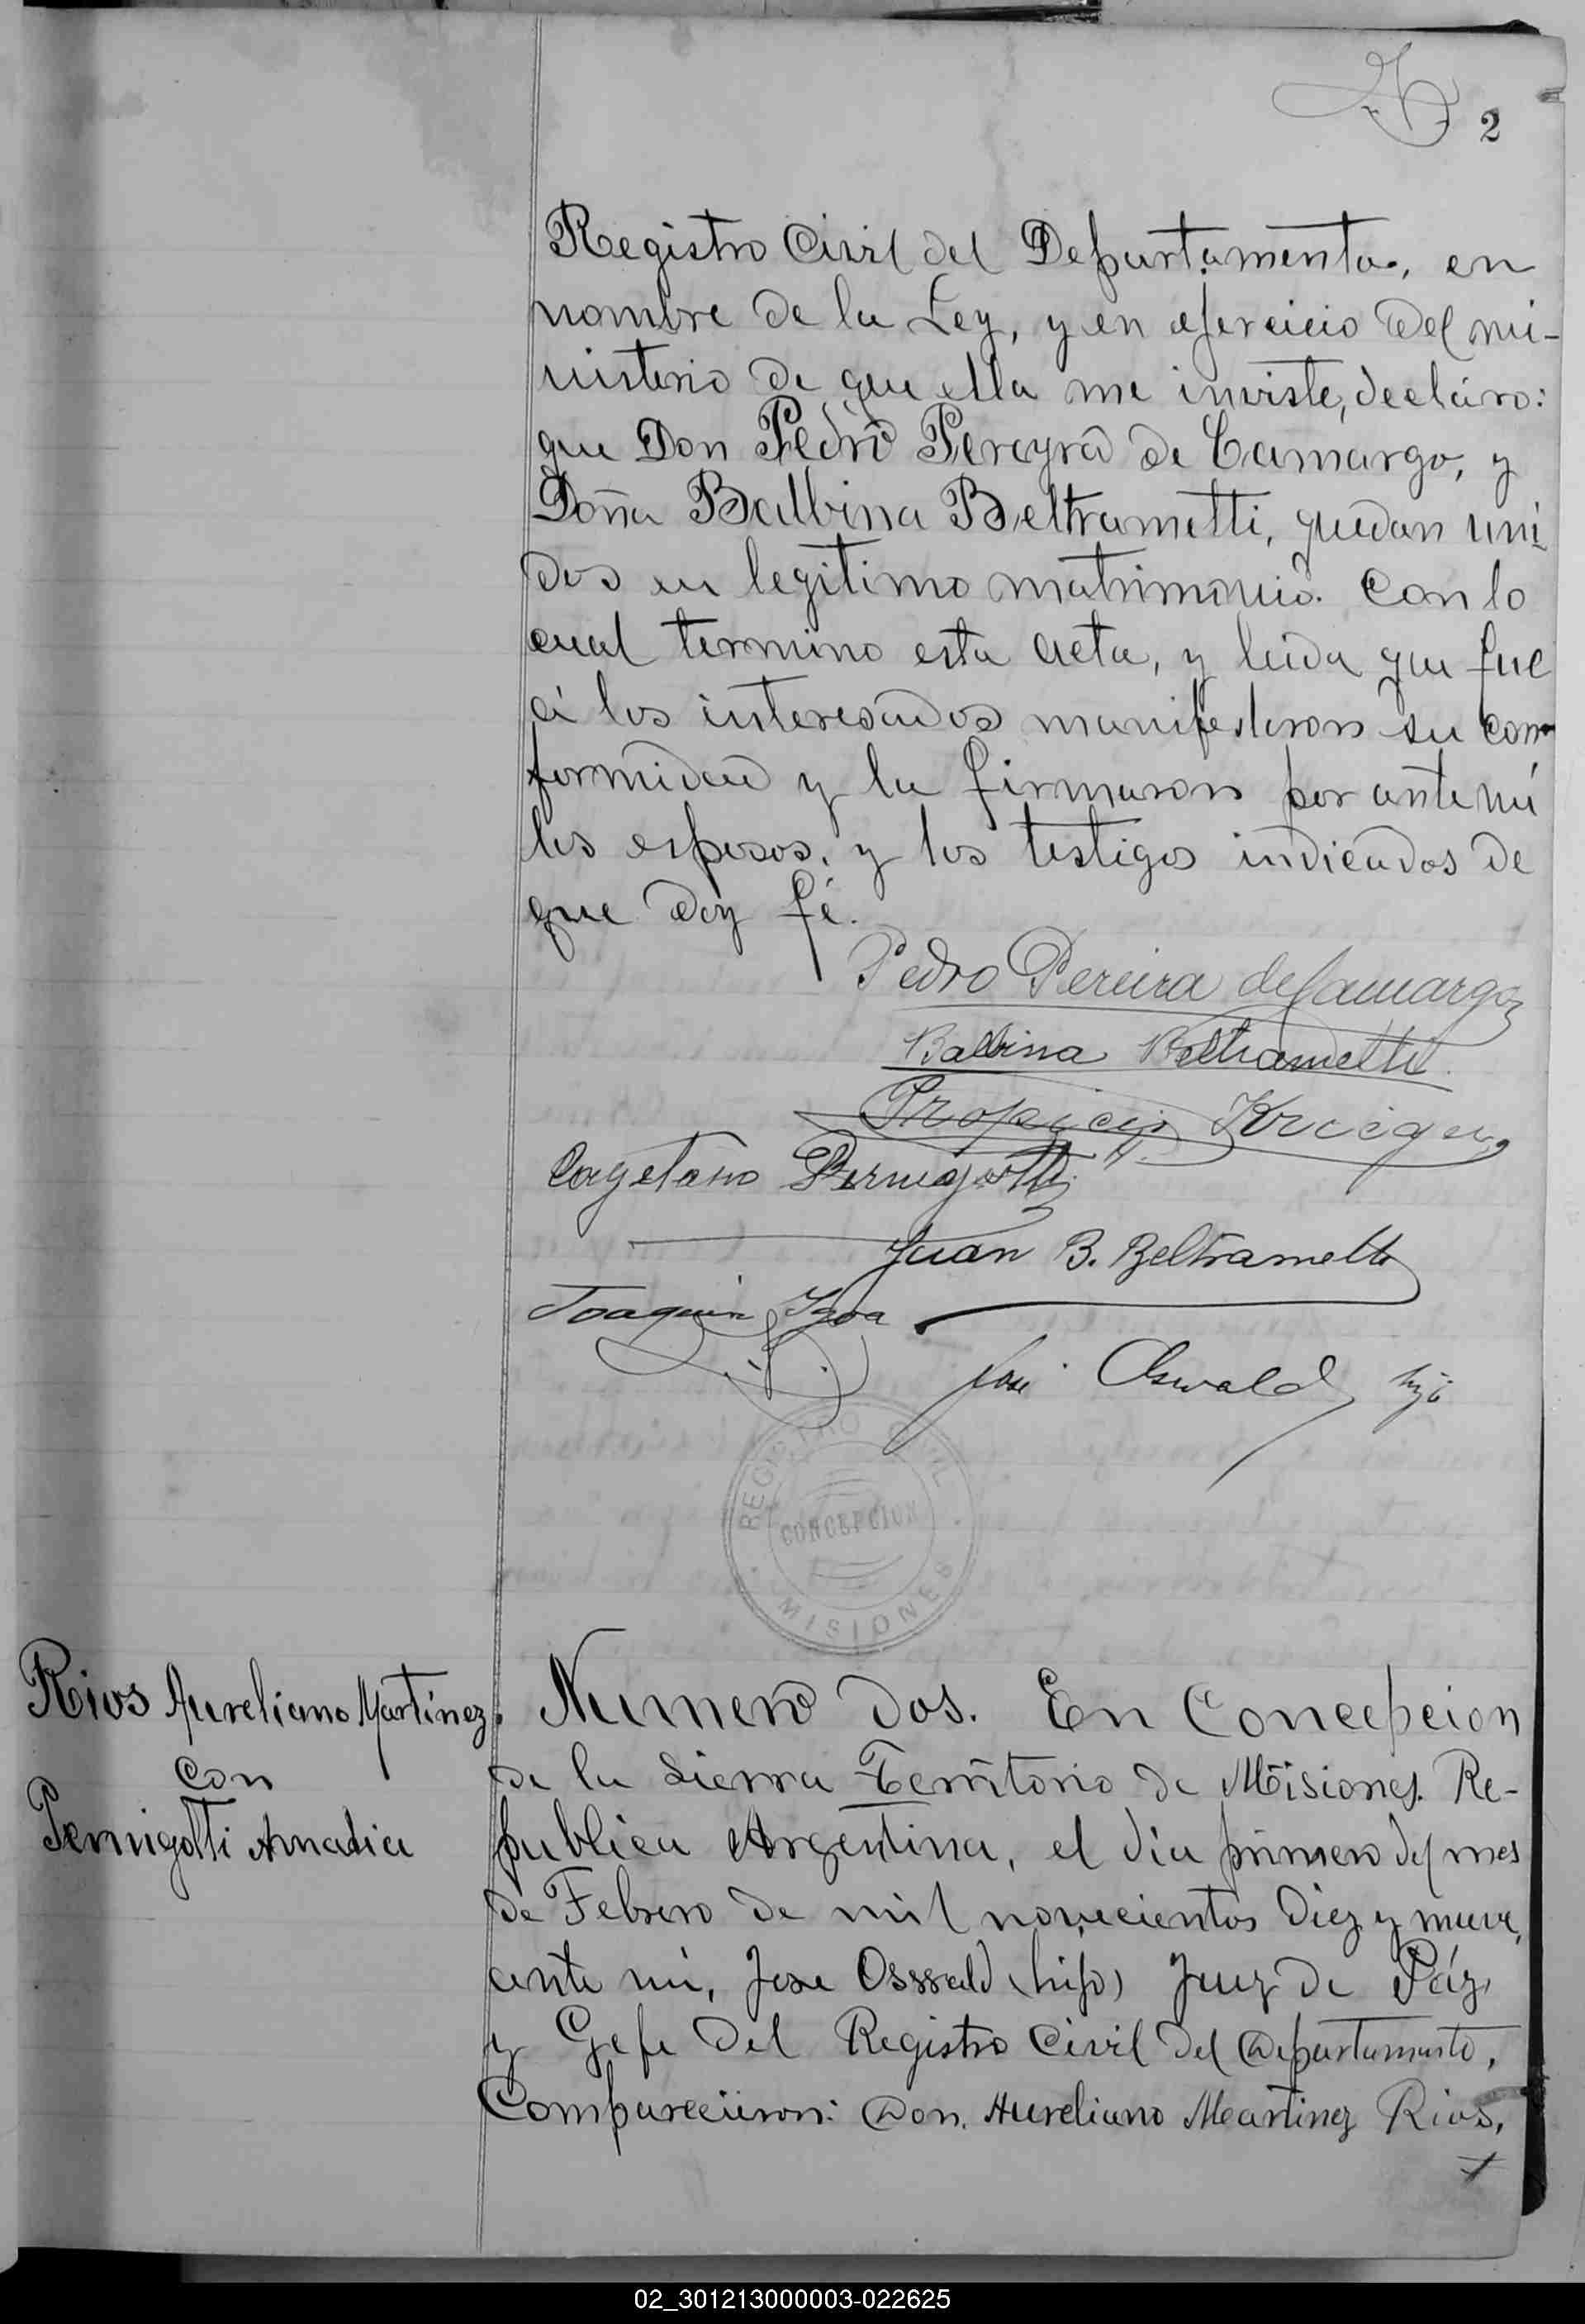 2
Registro Civil del Departamento, en
nombre de la Ley, y en ejercicio del mi-
nisterio de que ella me inviste, declaro:
que Don Pedro Pereyra de Camargo, y
Doña Balbina Beltrametti, quedan uni
dos en legitimo matrimonio. Con lo
cual termino esta acta, y leida que fue
á los interesados manifestaron su con-
formidad y la firmaron por ante mi
los esposos, y los testigos indicados de
que doy fé.
Pedro Pereira de Camargo
Balbina Beltrametti
Krueger
Cayetano Pernigotti
Juan B. Beltrametti
Joaquin
José Oswald hijo
REGISTRO CIVIL
CONCEPCION
MISIONES
Rios Aureliano Martinez
con
Pernigotti Amadia
Numero dos. En Concepcion
de la Sierra Territorio de Misiones. Re-
publica Argentina, el dia primero del mes
de Febrero de mil novecientos diez y nueve,
ante mi, Jose Osswald (hijo) Juez de Páz
y Gefe del Registro Civil del Departamento,
Comparecieron: Don. Aureliano Martinez Rios,
02_301213000003-022625